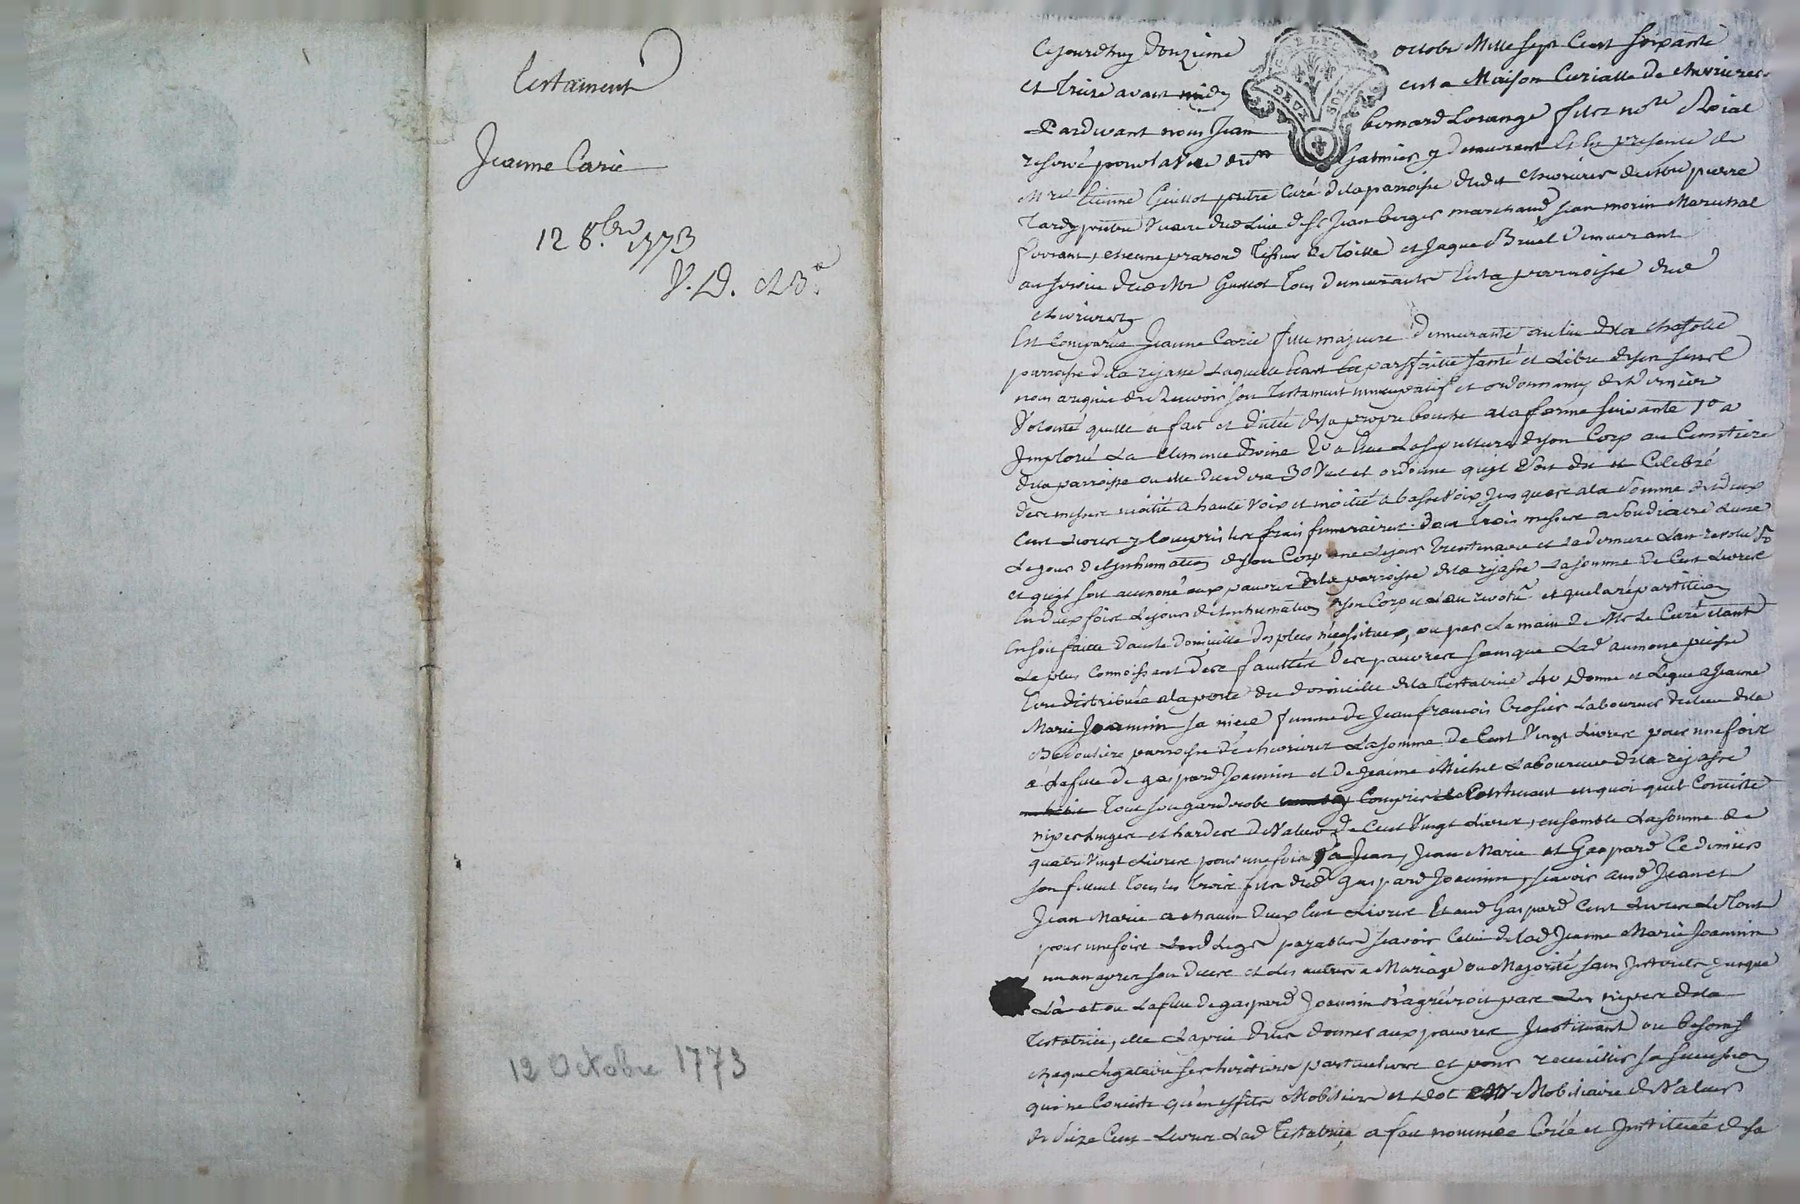 Testament
Jeanne Carie
12 8.bre 1773
V. D. et B.e
12 Octobre 1773
Cejourdhuy Douzieme octobre Mille Sept Cent soixante
et Treize avant midy en la Maison Curialle de chevrieres
Pardevant nous Jean bernard Lorange fils nore Roial
reservé pour la ville de st Galmier y demeurant En la presence de
Mre Etienne Guillot pretre Curé de la parroisse dud chevrieres de sieur pierre
Tardy pretre Vicaire dud Lieu de sr Jean berger marchand Jean morin Marechal
ferrant, etienne prarond Tissier de Toille et Jaque Bruel demeurant
au service dud Mr Guillot tous demeurants En la parroisse dud
chevrieres
Est Comparüe Jeanne Carie fille majeure demeurante au lieu de la chafolie
parroisse de la rejasse Laquelle Etant En parfaitte santé et Libre de son sens
nous a requis de Recevoir son Testament nuncupatif et ordonnance de derniere
Volonté quelle a fait et dicté de sa propre bouche a la forme suivante 1o a
Imploré La Clemence divine 2o a Elu La sepulture de son Corp au Cimetiere
de la parroisse ou elle decedera 3o Veut et ordonne quil soit dit et Celebré
des messes moitié a haute Voix et moitié a basse Voix Jusques a la somme de deux
Cent Livres y Compris les frais funeraires dont trois messes
Le jour de Linhumation de son Corp une Le jour Trentenaire et La derniere Lan revolu
et quil soit aumoné aux pauvres de la parroisse de la rejasse La somme de Cent Livres
En deux fois Le jour de Linhumation de son Corp et Lan revolu et que la repartition
En soit faitte dans le domicille des plus necessiteux, ou par La main de Mr Le Curé etant
Le plus Connoissant des facultés des pauvres sans que Lad aumone puisse
Etre distribuée a la porte du domicille de la Testatrice 4o Donne et Legue a Jeanne
Marie Joannin sa niece femme de Jean francois Crosier Laboureur du lieu de la
parroisse de chevrieres La somme de Cent Vingt Livres pour une fois
a La fille de gaspard Joannin et de Jeanne Michel Laboureur de la rejasse
Tout son garderobe Compris en quoi quil Consiste
nipes Linges et hardes de Valeur de Cent Vingt Livres, ensemble La somme de
quatre Vingt Livres pour une fois, a Jean, Jean Marie et Gaspard Ce dernier
son filleul tous les trois fils dud gaspard Joannin, scavoir aud Jean et
Jean Marie a chacun deux Cent Livres Et aud Gaspard Cent Livres Le Tout
pour une fois Lesd Legs payables scavoir Celui de lad Jeanne Marie Joannin
un an apres son deces et Les autres a Mariage ou Majorité sans Interets Jusque
La et ou La fille de gaspard Joannin n'agréeroit pas Les nipes de la
Testatrice, elle La prie de les donner aux pauvres Instituant ou besoin
chaque Legataire ses heritiers particuliers et pour recueillir sa succession
qui ne Consiste qu'en effets Mobiliers et dot Mobiliaire de Valeur
de Cent Livres Lad Testatrice a fait nommée Créé et Instituée de sa